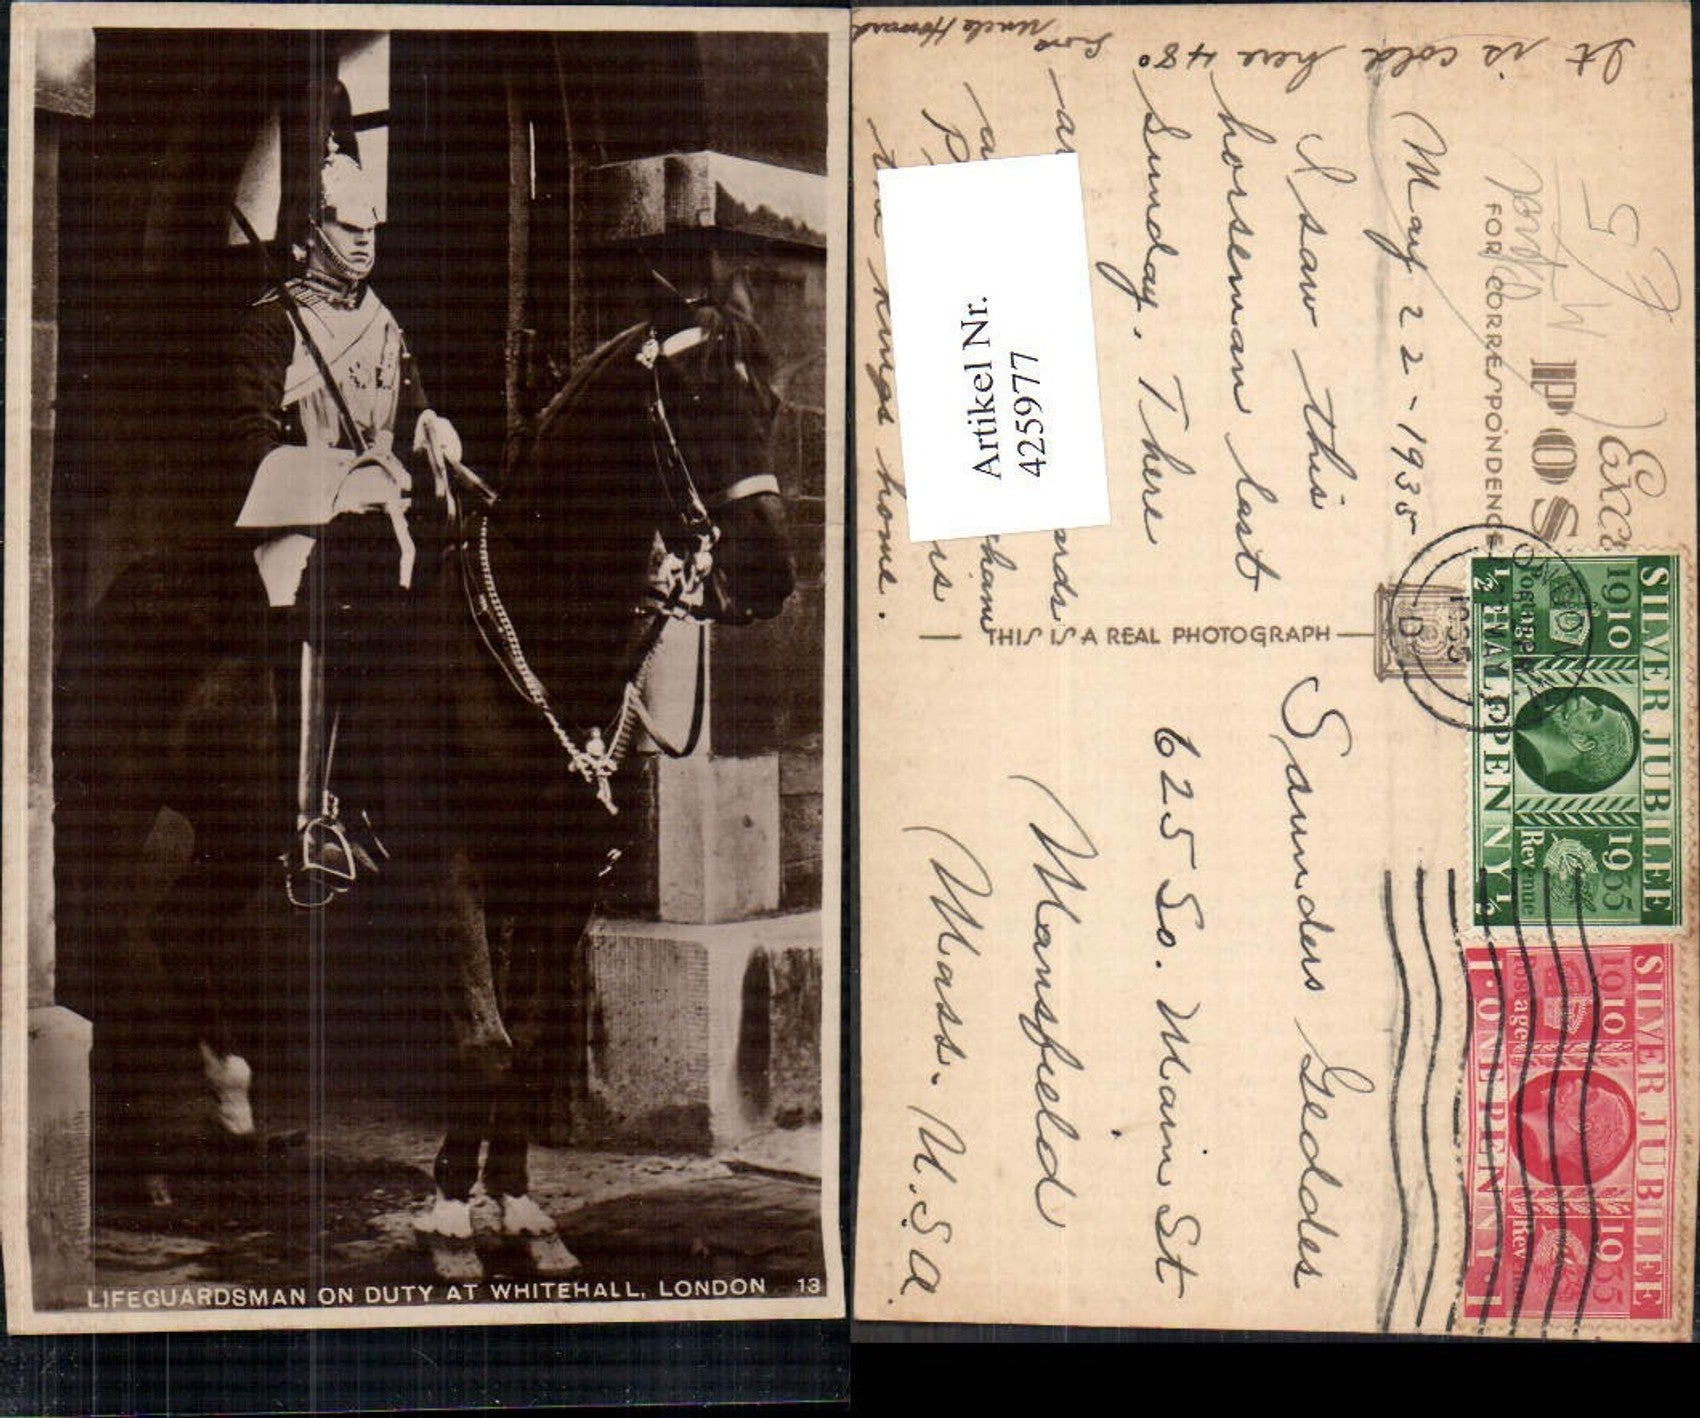 LIFEGUARDSMAN ON DUTY AT WHITEHALL, LONDON 13
It is cold here 48°
from
Uncle Howard
57
FOR CORRESPONDENCE
POS
May 22-1935
I saw this
horseman last
Sunday. There
ards
is
the kings home.
Artikel Nr.
4259977
THIS IS A REAL PHOTOGRAPH
Saunders Geddes
625 So. Main St
Mansfield
Mass. U.S.A.
LONDON
1935
SILVER JUBILEE
1910 1935
Postage Revenue
½ HALFPENNY ½
SILVER JUBILEE
1910 1935
Postage Rev
1 ONE PENNY 1